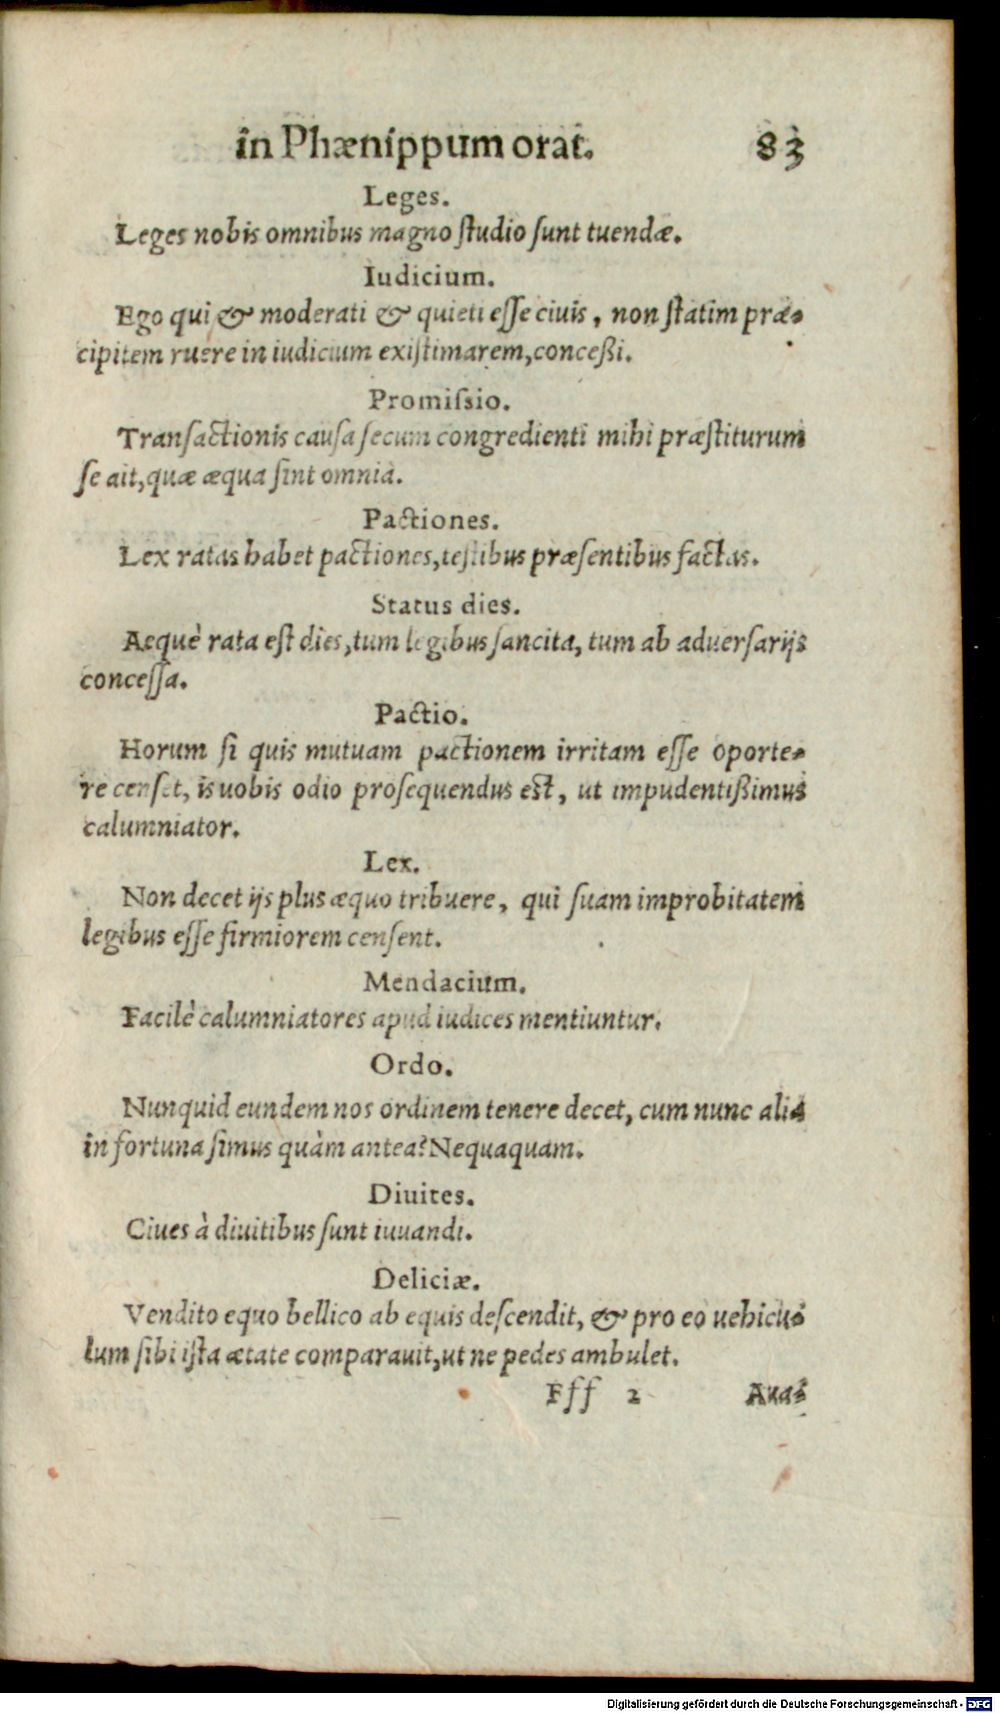 in Phænippum orat. 83
Leges.
Leges nobis omnibus magno ſtudio ſunt tuendæ.
Iudicium.
Ego qui & moderati & quieti eſſe ciuis, non ſtatim præ-
cipitem ruere in iudicium exiſtimarem, conceßi.
Promiſsio.
Tranſactionis cauſa ſecum congredienti mihi præſtiturum
ſe ait, quæ æqua ſint omnia.
Pactiones.
Lex ratas habet pactiones, teſtibus præſentibus factas.
Status dies.
Aequè rata eſt dies, tum legibus ſancita, tum ab aduerſarijs
conceſſa.
Pactio.
Horum ſi quis mutuam pactionem irritam eſſe oporte-
re cenſet, is uobis odio proſequendus eſt, ut impudentißimus
calumniator.
Lex.
Non decet ijs plus æquo tribuere, qui ſuam improbitatem
legibus eſſe firmiorem cenſent.
Mendacium.
Facilè calumniatores apud iudices mentiuntur.
Ordo.
Nunquid eundem nos ordinem tenere decet, cum nunc alia
in fortuna ſimus quàm antea? Nequaquam.
Diuites.
Ciues à diuitibus ſunt iuuandi.
Deliciæ.
Vendito equo bellico ab equis deſcendit, & pro eo uehicu-
lum ſibi iſta ætate comparauit, ut ne pedes ambulet.
Fff 2 Aua-
Digitalisierung gefördert durch die Deutsche Forschungsgemeinschaft - DFG